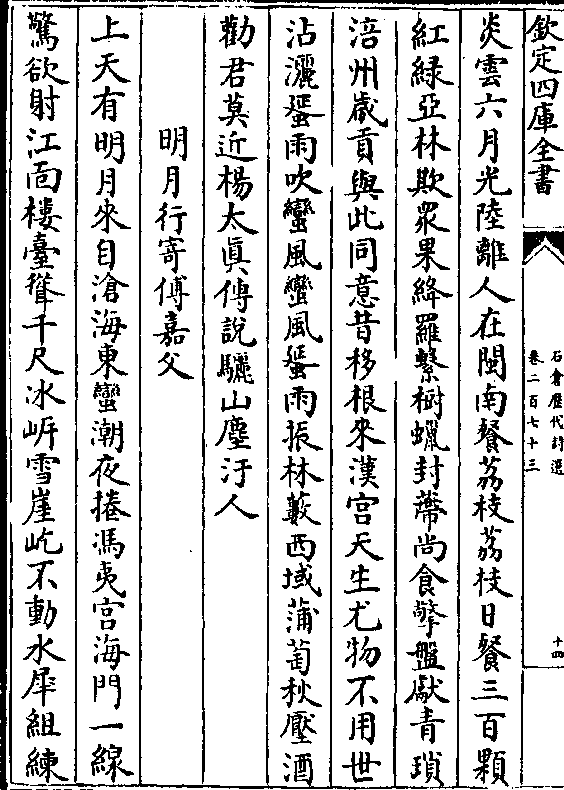 欽定四庫全書
石倉歷代詩選
卷二百七十三
十四
炎雲六月光陸離人在閩南餐荔枝荔枝日餐三百顆
紅綠亞林欺衆果絳羅繫樹蠟封蔕尚食擎盤獻青瑣
涪州歲貢與此同意昔移根來漢宫天生尤物不用世
沾灑蜑雨吹蠻風蠻風蜑雨振林藪西域蒲萄秋壓酒
勸君莫近楊太眞傳說驪山塵汙人
明月行寄傅嘉父
上天有明月來自滄海東蠻潮夜捲馮夷宫海門一線
驚欲射江面樓臺聳千尺冰岍雪崖屹不動水犀組練